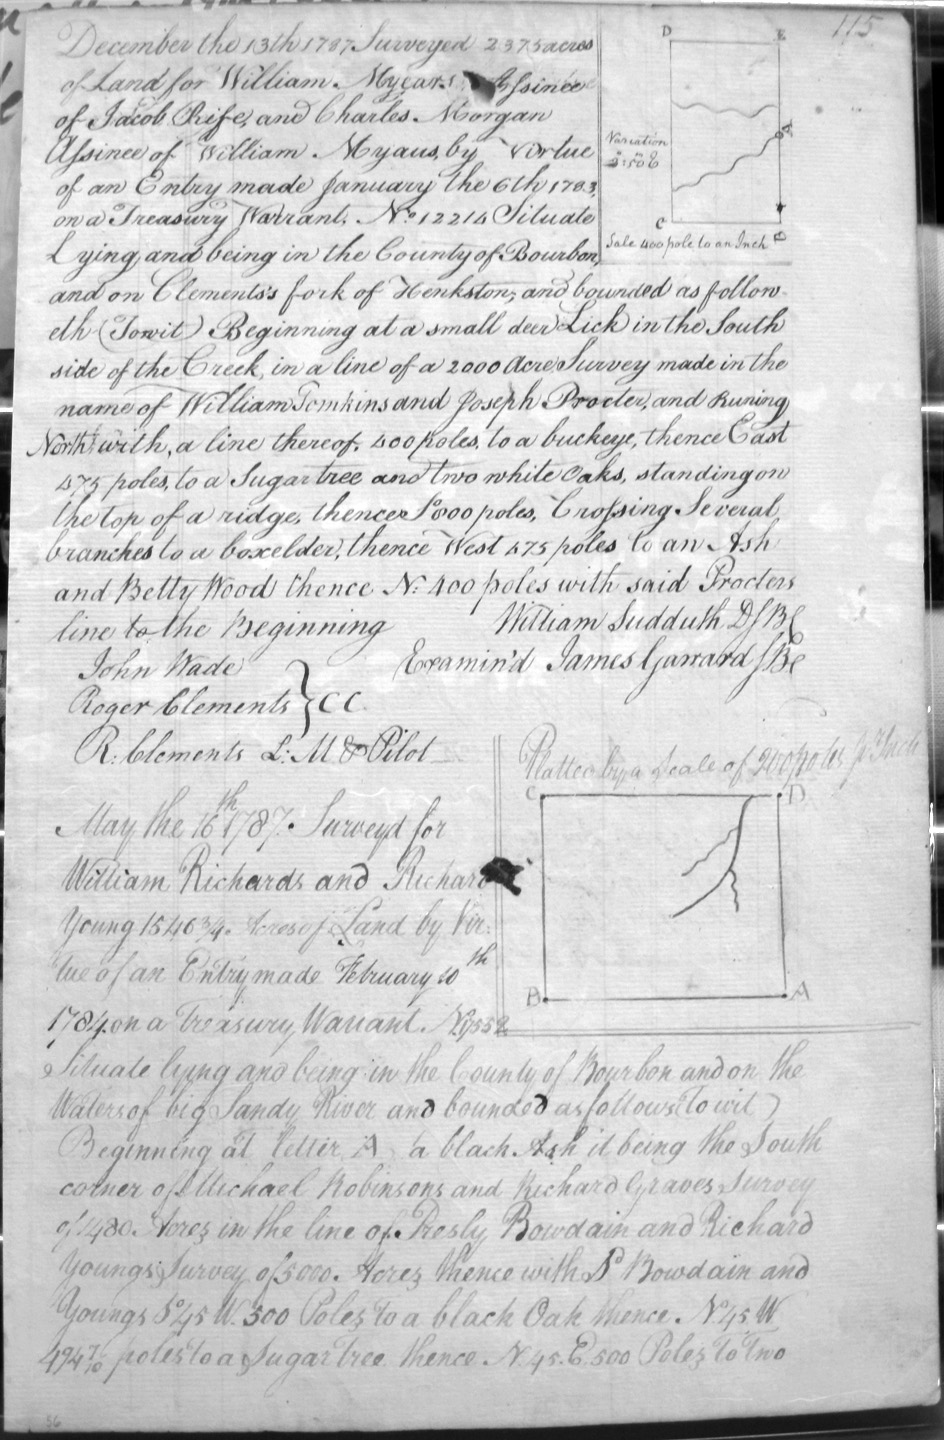 115
December the 13th 1787 Surveyed 2375 acres
of Land for William Myears Assinee
of Jacob Rife, and Charles Morgan
Assinee of William Myaus, by Virtue
of an Entry made January the 6th 1783,
on a Treasury Warrant, No 12214 Situate
Lying and being in the County of Bourbon,
and on Clements's fork of Henkston, and bounded as follow-
eth (Towit) Beginning at a small deer Lick in the South
side of the Creek, in a line of a 2000 Acre Survey made in the
name of William Tomkins and Joseph Procter, and Runing
North with, a line thereof, 400 poles, to a buckeye, thence East
475 poles, to a Sugar tree and two white Oaks, standing on
the top of a ridge, thence So 800 poles, Crossing Several
branches to a boxelder, thence West 475 poles to an Ash
and Betty Wood thence N: 400 poles with said Procters
line to the Beginning
William Sudduth D S B C
John Wade
Examin'd James Garrard S B C
Roger Clements } C C
R: Clements L: M & Pilot
D
E
Variation
A
C
B
Sale 400 pole to an Inch
Platted by a Scale of 200 poles p Inch
C
D
B
A
May the 16th 1787. Surveyd for
William Richards and Richard
Young 1546 3/4 Acres of Land by Vir-
tue of an Entry made February 10th
1784 on a Treasury Warrant. No
Situate lying and being in the County of Bourbon and on the
Waters of big Sandy River and bounded as follows (to wit)
Beginning at letter A a black Ash it being the South
corner of Michael Robinsons and Richard Graves Survey
of 1480. Acres in the line of Presly Bowdain and Richard
Youngs Survey of 5000. Acres thence with P Bowdain and
Youngs So 45 W. 500 Poles to a black Oak thence. No 45 W
poles to a Sugar Tree thence N. 45. E. 500 Poles to Two